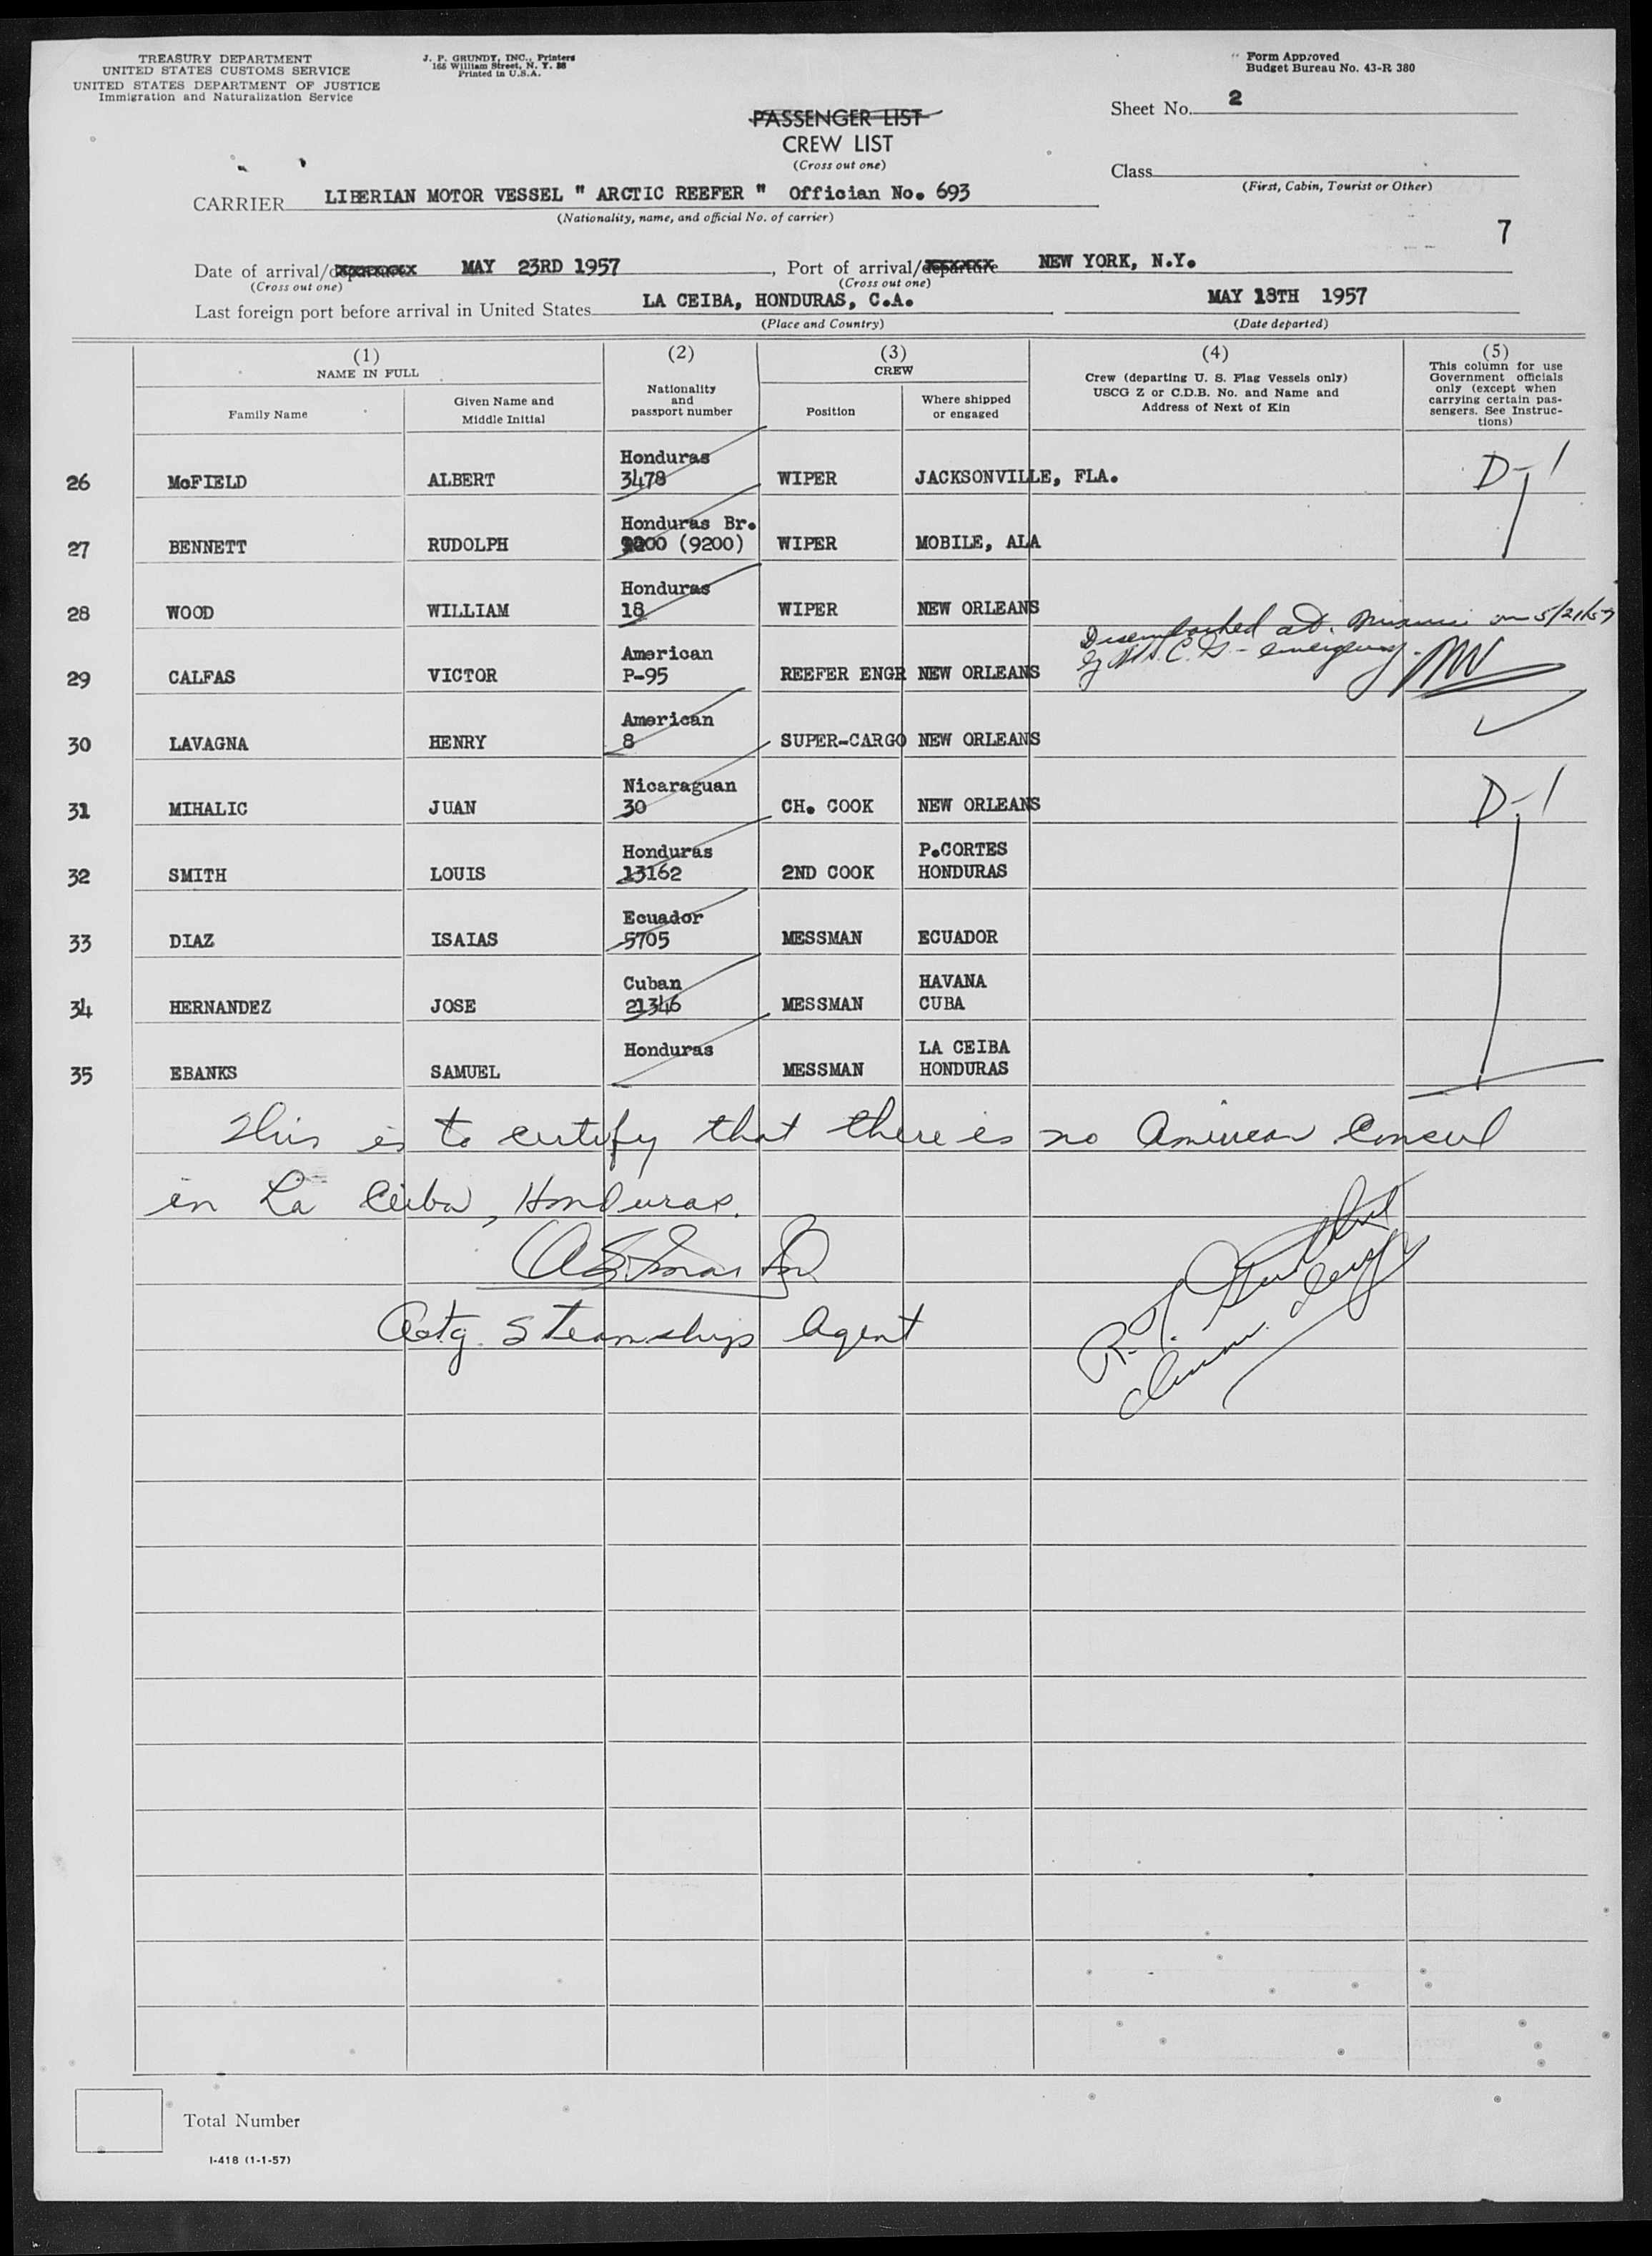 TREASURY DEPARTMENT
UNITED STATES CUSTOMS SERVICE
UNITED STATES DEPARTMENT OF JUSTICE
Immigration and Naturalization Service
J. P. GRUNDY, INC., Printers
165 William Street, N. Y. 38
Printed in U.S.A.
Form Approved
Budget Bureau No. 43-R 380
Sheet No. 2
PASSENGER LIST
CREW LIST
(Cross out one)
Class
(First, Cabin, Tourist or Other)
CARRIER LIBERIAN MOTOR VESSEL " ARCTIC REEFER " Offician No. 693
(Nationality, name, and official No. of carrier)
7
Date of arrival/departure MAY 23RD 1957, Port of arrival/departure NEW YORK, N.Y.
(Cross out one) (Cross out one)
Last foreign port before arrival in United States LA CEIBA, HONDURAS, C.A. MAY 18TH 1957
(Place and Country) (Date departed)
(1) NAME IN FULL
Family Name
Given Name and Middle Initial
(2)
Nationality and passport number
(3) CREW
Position
Where shipped or engaged
(4)
Crew (departing U. S. Flag Vessels only)
USCG Z or C.D.B. No. and Name and
Address of Next of Kin
(5)
This column for use
Government officials
only (except when
carrying certain pas-
sengers. See Instruc-
tions)
26 McFIELD ALBERT Honduras 3478 WIPER JACKSONVILLE, FLA. D-1
27 BENNETT RUDOLPH Honduras Br. 9200 (9200) WIPER MOBILE, ALA
28 WOOD WILLIAM Honduras 18 WIPER NEW ORLEANS
Disembarked at Miami on 5/21/57
by U.S.C.G - emergency.
29 CALFAS VICTOR American P-95 REEFER ENGR NEW ORLEANS
30 LAVAGNA HENRY American 8 SUPER-CARGO NEW ORLEANS
31 MIHALIC JUAN Nicaraguan 30 CH. COOK NEW ORLEANS D-1
32 SMITH LOUIS Honduras 13162 2ND COOK P.CORTES HONDURAS
33 DIAZ ISAIAS Ecuador 5705 MESSMAN ECUADOR
34 HERNANDEZ JOSE Cuban 21346 MESSMAN HAVANA CUBA
35 EBANKS SAMUEL Honduras MESSMAN LA CEIBA HONDURAS
This is to certify that there is no American Consul
in La Ceiba, Honduras.
Actg. Steamships Agent
Total Number
I-418 (1-1-57)